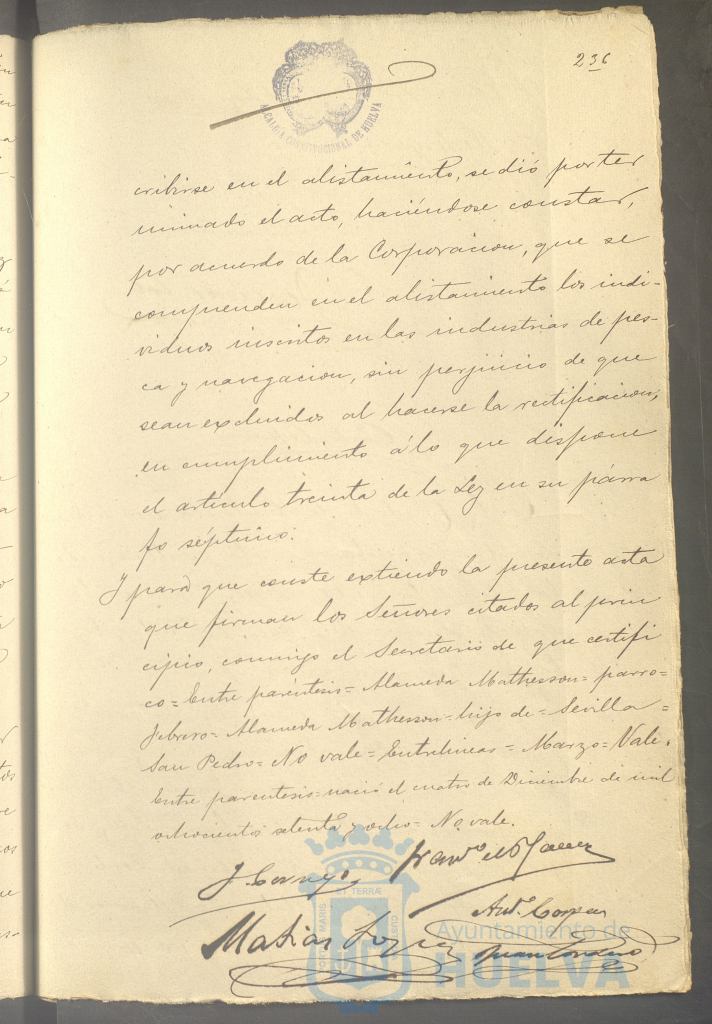 236
ALCALDIA CONSTITUCIONAL DE HUELVA
cribirse en el alistamiento, se dió por ter
minado el acto, haciéndose constar,
por acuerdo de la Corporacion, que se
comprenden en el alistamiento los indi-
viduos inscritos en las industrias de pes-
ca y navegacion, sin perjuicio de que
sean excluidos al hacerse la rectificacion;
en cumplimiento á lo que dispone
el artículo treinta de la Ley en su párra
fo séptimo.
Y para que conste extiendo la presente acta
que firman los Señores citados al prin
cipio, conmigo el Secretario de que certifi
co = Entre paréntesis = Alameda Mathesson = parro =
Febrero = Alameda Mathesson = hijo de = Sevilla =
San Pedro = No vale = Entrelineas = Marzo = Vale.
Entre parentesis = nació el cuatro de Diciembre de mil
ochocientos setenta y ocho = No vale.
Matias Lopez
Ayuntamiento de
HUELVA